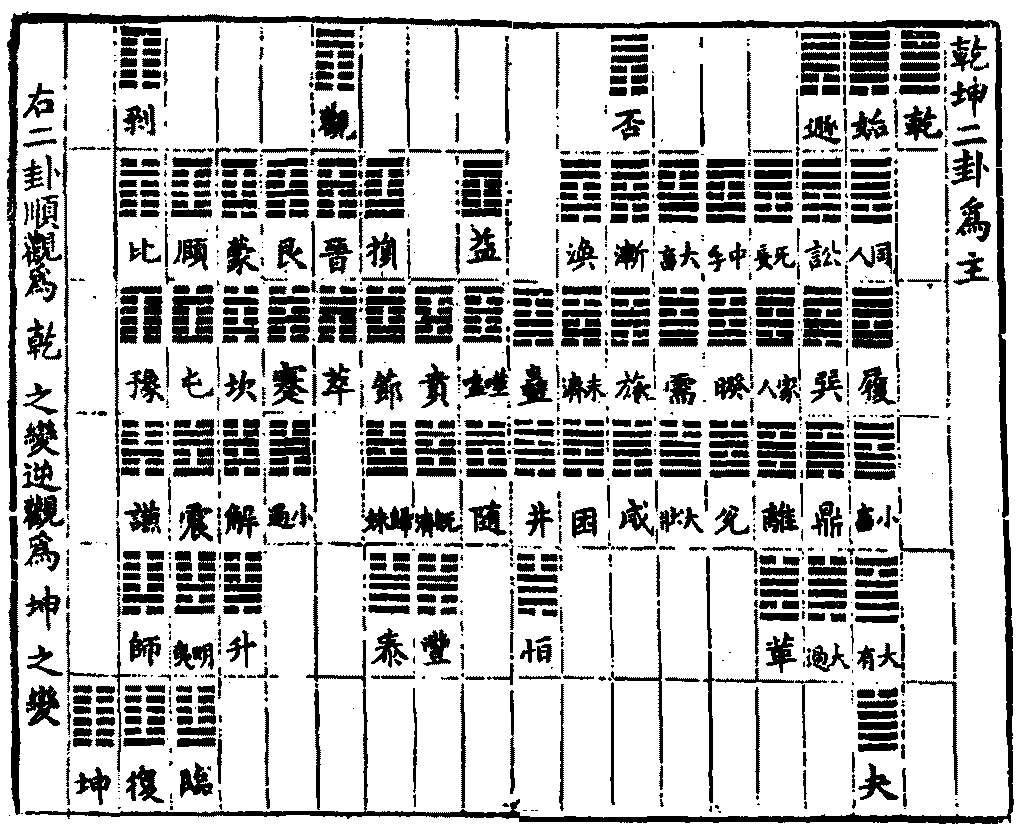 乾坤二卦為主
乾
姤
遯
否
觀
剥
同人
訟
无妄
中孚
大畜
漸
渙
益
損
晉
艮
蒙
頤
比
履
巽
家人
睽
需
旅
未濟
蠱
噬嗑
賁
節
萃
蹇
坎
屯
豫
小畜
鼎
離
兌
大壯
咸
困
井
随
既濟
歸妹
小過
解
震
謙
大有
大過
革
恒
豐
泰
升
明夷
師
夬
臨
復
坤
右二卦順觀為乾之變逆觀為坤之變